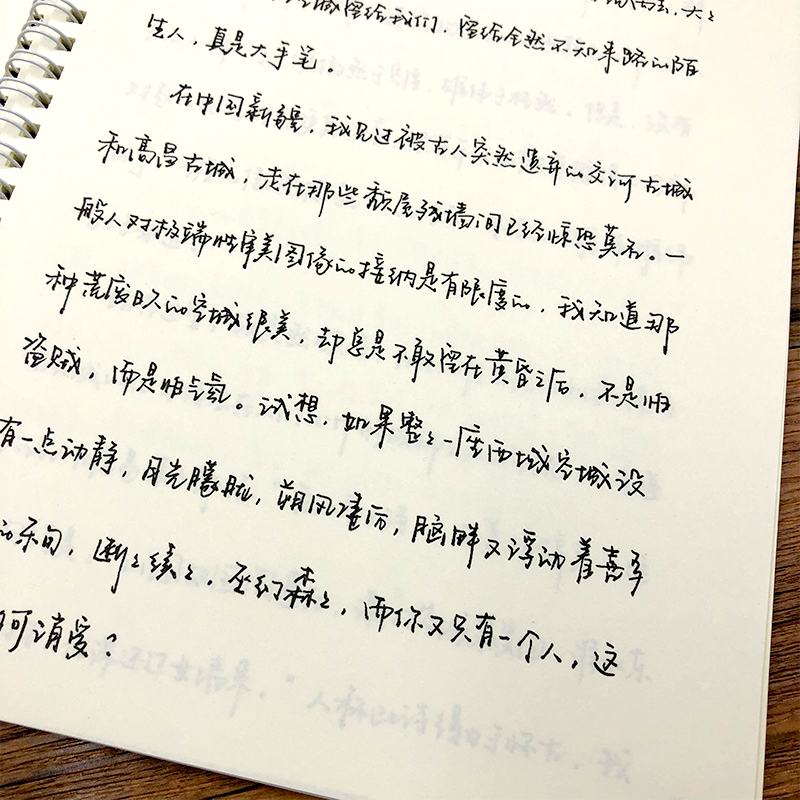 大々
城留给我们，留给全然不知来路的陌
生人，真是大手笔。
在中国新疆，我见过被古人突然遗弃的交河古城
和高昌古城，走在那些颓屋残墙间已经惊恐莫名。一
般人对极端性审美图像的接纳是有限度的，我知道那
种荒废日久的空城很美，却总是不敢留在黄昏之后，不是怕
盗贼，而是怕气氛。试想，如果整々一座西域空城没
有一点动静，月光朦胧，朔风凄厉，脑畔又浮动着喜多
的乐句，断々续々，巫幻森々，而你又只有一个人，这
何消受？